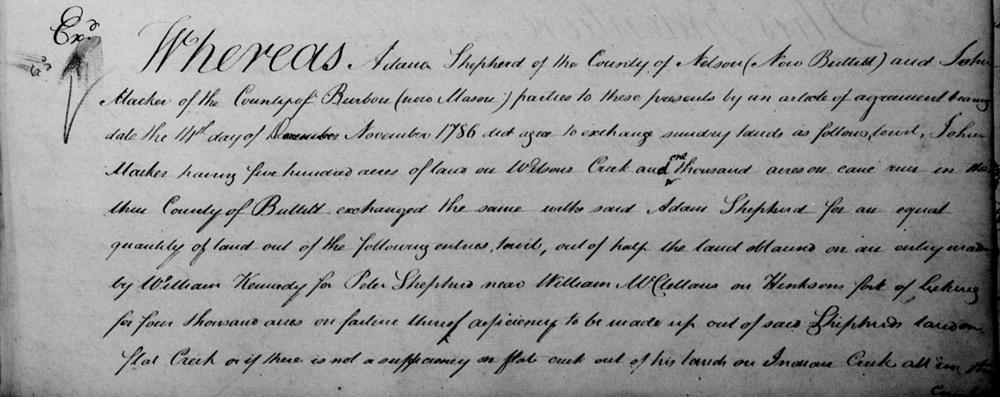 Exd
Whereas Adam Shepherd of the County of Nelson (Now Bullitt) and John
Macker of the County of Burbon (now Mason) parties to these presents by an article of agreement bearing
date the 14th day of November 1786 did agree to exchange sundry lands as follows, towit, John
Macker having five hundred acres of land on Wilsons Creek and one thousand acres on cane run in the
then County of Bullitt exchanged the same with said Adam Shepherd for an equal
quantity of land out of the following entries, towit, out of half the land obtained on an entry made
by William Kennedy for Peter Shepherd near William McClellans on Hinksons fork of Licking
for four thousand acres on failure thereof a deficiency to be made up out of said Shepherds land on
flat Creek or if there is not a sufficiency on flat creek out of his lands on Indian Creek all in the